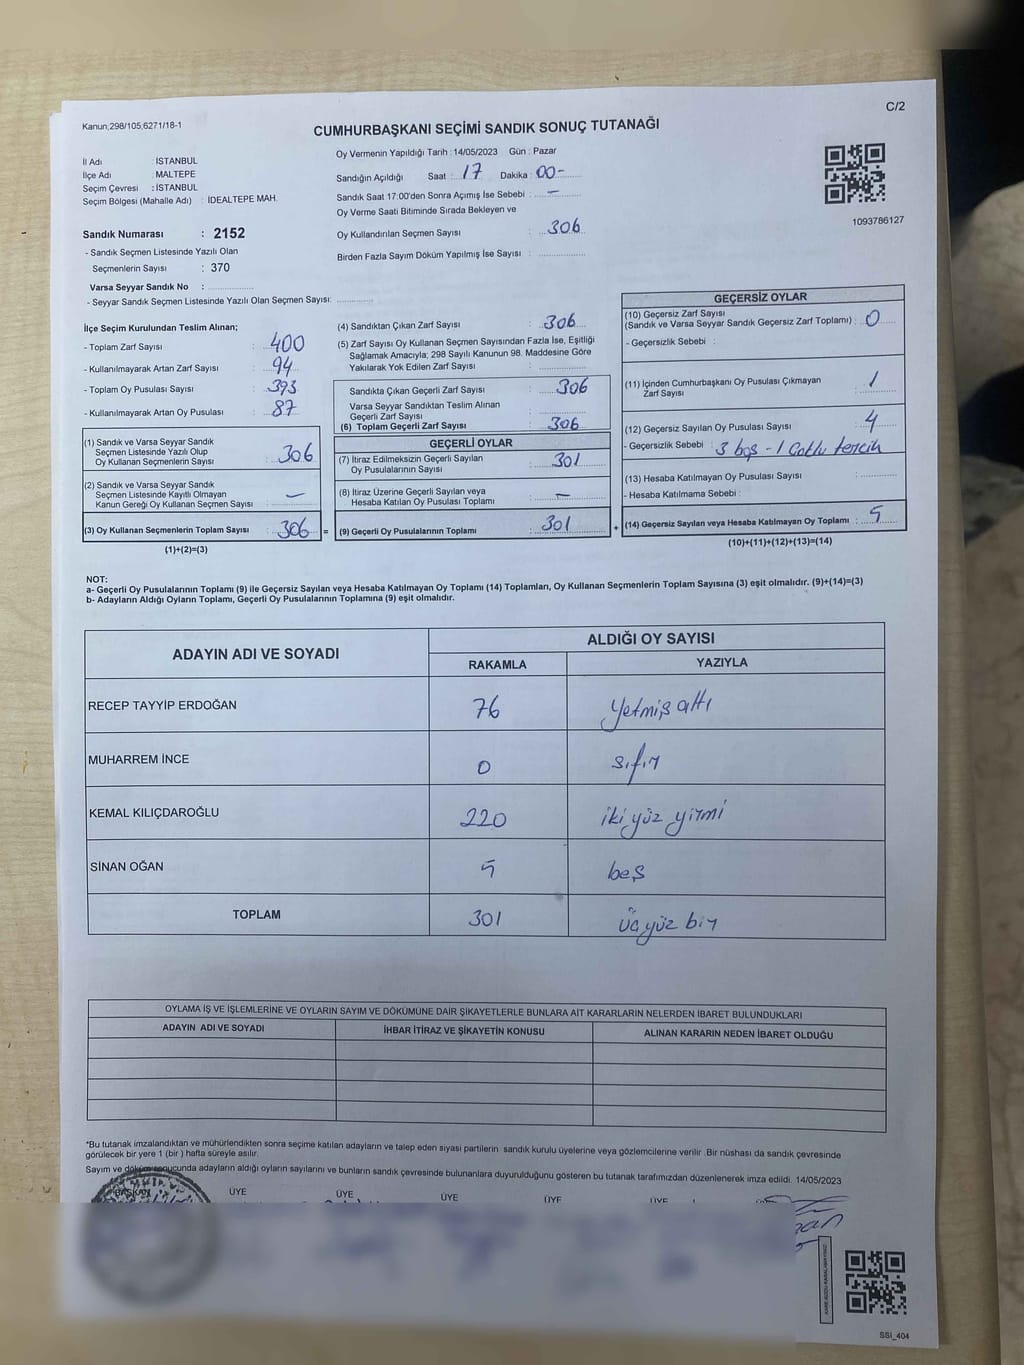 C/2
Kanun;298/105,6271/18-1
CUMHURBAŞKANI SEÇİMİ SANDIK SONUÇ TUTANAĞI
İl Adı : İSTANBUL
İlçe Adı : MALTEPE
Seçim Çevresi : İSTANBUL
Seçim Bölgesi (Mahalle Adı) : İDEALTEPE MAH.
Sandık Numarası : 2152
- Sandık Seçmen Listesinde Yazılı Olan
Seçmenlerin Sayısı : 370
Varsa Seyyar Sandık No :
- Seyyar Sandık Seçmen Listesinde Yazılı Olan Seçmen Sayısı:
Oy Vermenin Yapıldığı Tarih : 14/05/2023 Gün : Pazar
Sandığın Açıldığı Saat : 17 Dakika : 00-
Sandık Saat 17:00'den Sonra Açımış İse Sebebi : -
Oy Verme Saati Bitiminde Sırada Bekleyen ve
Oy Kullandırılan Seçmen Sayısı : 306
Birden Fazla Sayım Döküm Yapılmış İse Sayısı :
1093786127
İlçe Seçim Kurulundan Teslim Alınan;
- Toplam Zarf Sayısı : 400
- Kullanılmayarak Artan Zarf Sayısı : 94
- Toplam Oy Pusulası Sayısı : 393
- Kullanılmayarak Artan Oy Pusulası : 87
(1) Sandık ve Varsa Seyyar Sandık
Seçmen Listesinde Yazılı Olup
Oy Kullanan Seçmenlerin Sayısı : 306
(2) Sandık ve Varsa Seyyar Sandık
Seçmen Listesinde Kayıtlı Olmayan
Kanun Gereği Oy Kullanan Seçmen Sayısı : -
(3) Oy Kullanan Seçmenlerin Toplam Sayısı : 306 =
(1)+(2)=(3)
(4) Sandıktan Çıkan Zarf Sayısı : 306
(5) Zarf Sayısı Oy Kullanan Seçmen Sayısından Fazla İse, Eşitliği
Sağlamak Amacıyla; 298 Sayılı Kanunun 98. Maddesine Göre
Yakılarak Yok Edilen Zarf Sayısı :
Sandıkta Çıkan Geçerli Zarf Sayısı : 306
Varsa Seyyar Sandıktan Teslim Alınan
Geçerli Zarf Sayısı :
(6) Toplam Geçerli Zarf Sayısı : 306
GEÇERLİ OYLAR
(7) İtiraz Edilmeksizin Geçerli Sayılan
Oy Pusulalarının Sayısı : 301
(8) İtiraz Üzerine Geçerli Sayılan veya
Hesaba Katılan Oy Pusulası Toplamı : -
(9) Geçerli Oy Pusulalarının Toplamı : 301 +
GEÇERSİZ OYLAR
(10) Geçersiz Zarf Sayısı
(Sandık ve Varsa Seyyar Sandık Geçersiz Zarf Toplamı) : 0
- Geçersizlik Sebebi :
(11) İçinden Cumhurbaşkanı Oy Pusulası Çıkmayan
Zarf Sayısı : 1
(12) Geçersiz Sayılan Oy Pusulası Sayısı : 4
- Geçersizlik Sebebi : 3 boş - 1 Çoklu tercih
(13) Hesaba Katılmayan Oy Pusulası Sayısı :
- Hesaba Katılmama Sebebi :
(14) Geçersiz Sayılan veya Hesaba Katılmayan Oy Toplamı : 5
(10)+(11)+(12)+(13)=(14)
NOT:
a- Geçerli Oy Pusulalarının Toplamı (9) ile Geçersiz Sayılan veya Hesaba Katılmayan Oy Toplamı (14) Toplamları, Oy Kullanan Seçmenlerin Toplam Sayısına (3) eşit olmalıdır. (9)+(14)=(3)
b- Adayların Aldığı Oyların Toplamı, Geçerli Oy Pusulalarının Toplamına (9) eşit olmalıdır.
ADAYIN ADI VE SOYADI ALDIĞI OY SAYISI
RAKAMLA YAZIYLA
RECEP TAYYİP ERDOĞAN 76 yetmiş altı
MUHARREM İNCE 0 sıfır
KEMAL KILIÇDAROĞLU 220 iki yüz yirmi
SİNAN OĞAN 5 beş
TOPLAM 301 üç yüz bir
OYLAMA İŞ VE İŞLEMLERİNE VE OYLARIN SAYIM VE DÖKÜMÜNE DAİR ŞİKAYETLERLE BUNLARA AİT KARARLARIN NELERDEN İBARET BULUNDUKLARI
ADAYIN ADI VE SOYADI İHBAR İTİRAZ VE ŞİKAYETİN KONUSU ALINAN KARARIN NEDEN İBARET OLDUĞU
*Bu tutanak imzalandıktan ve mühürlendikten sonra seçime katılan adayların ve talep eden siyasi partilerin sandık kurulu üyelerine veya gözlemcilerine verilir .Bir nüshası da sandık çevresinde
görülecek bir yere 1 (bir ) hafta süreyle asılır.
Sayım ve döküm sonucunda adayların aldığı oyların sayılarını ve bunların sandık çevresinde bulunanlara duyurulduğunu gösteren bu tutanak tarafımızdan düzenlenerek imza edildi. 14/05/2023
BAŞKAN ÜYE ÜYE ÜYE ÜYE ÜYE
SSİ_404